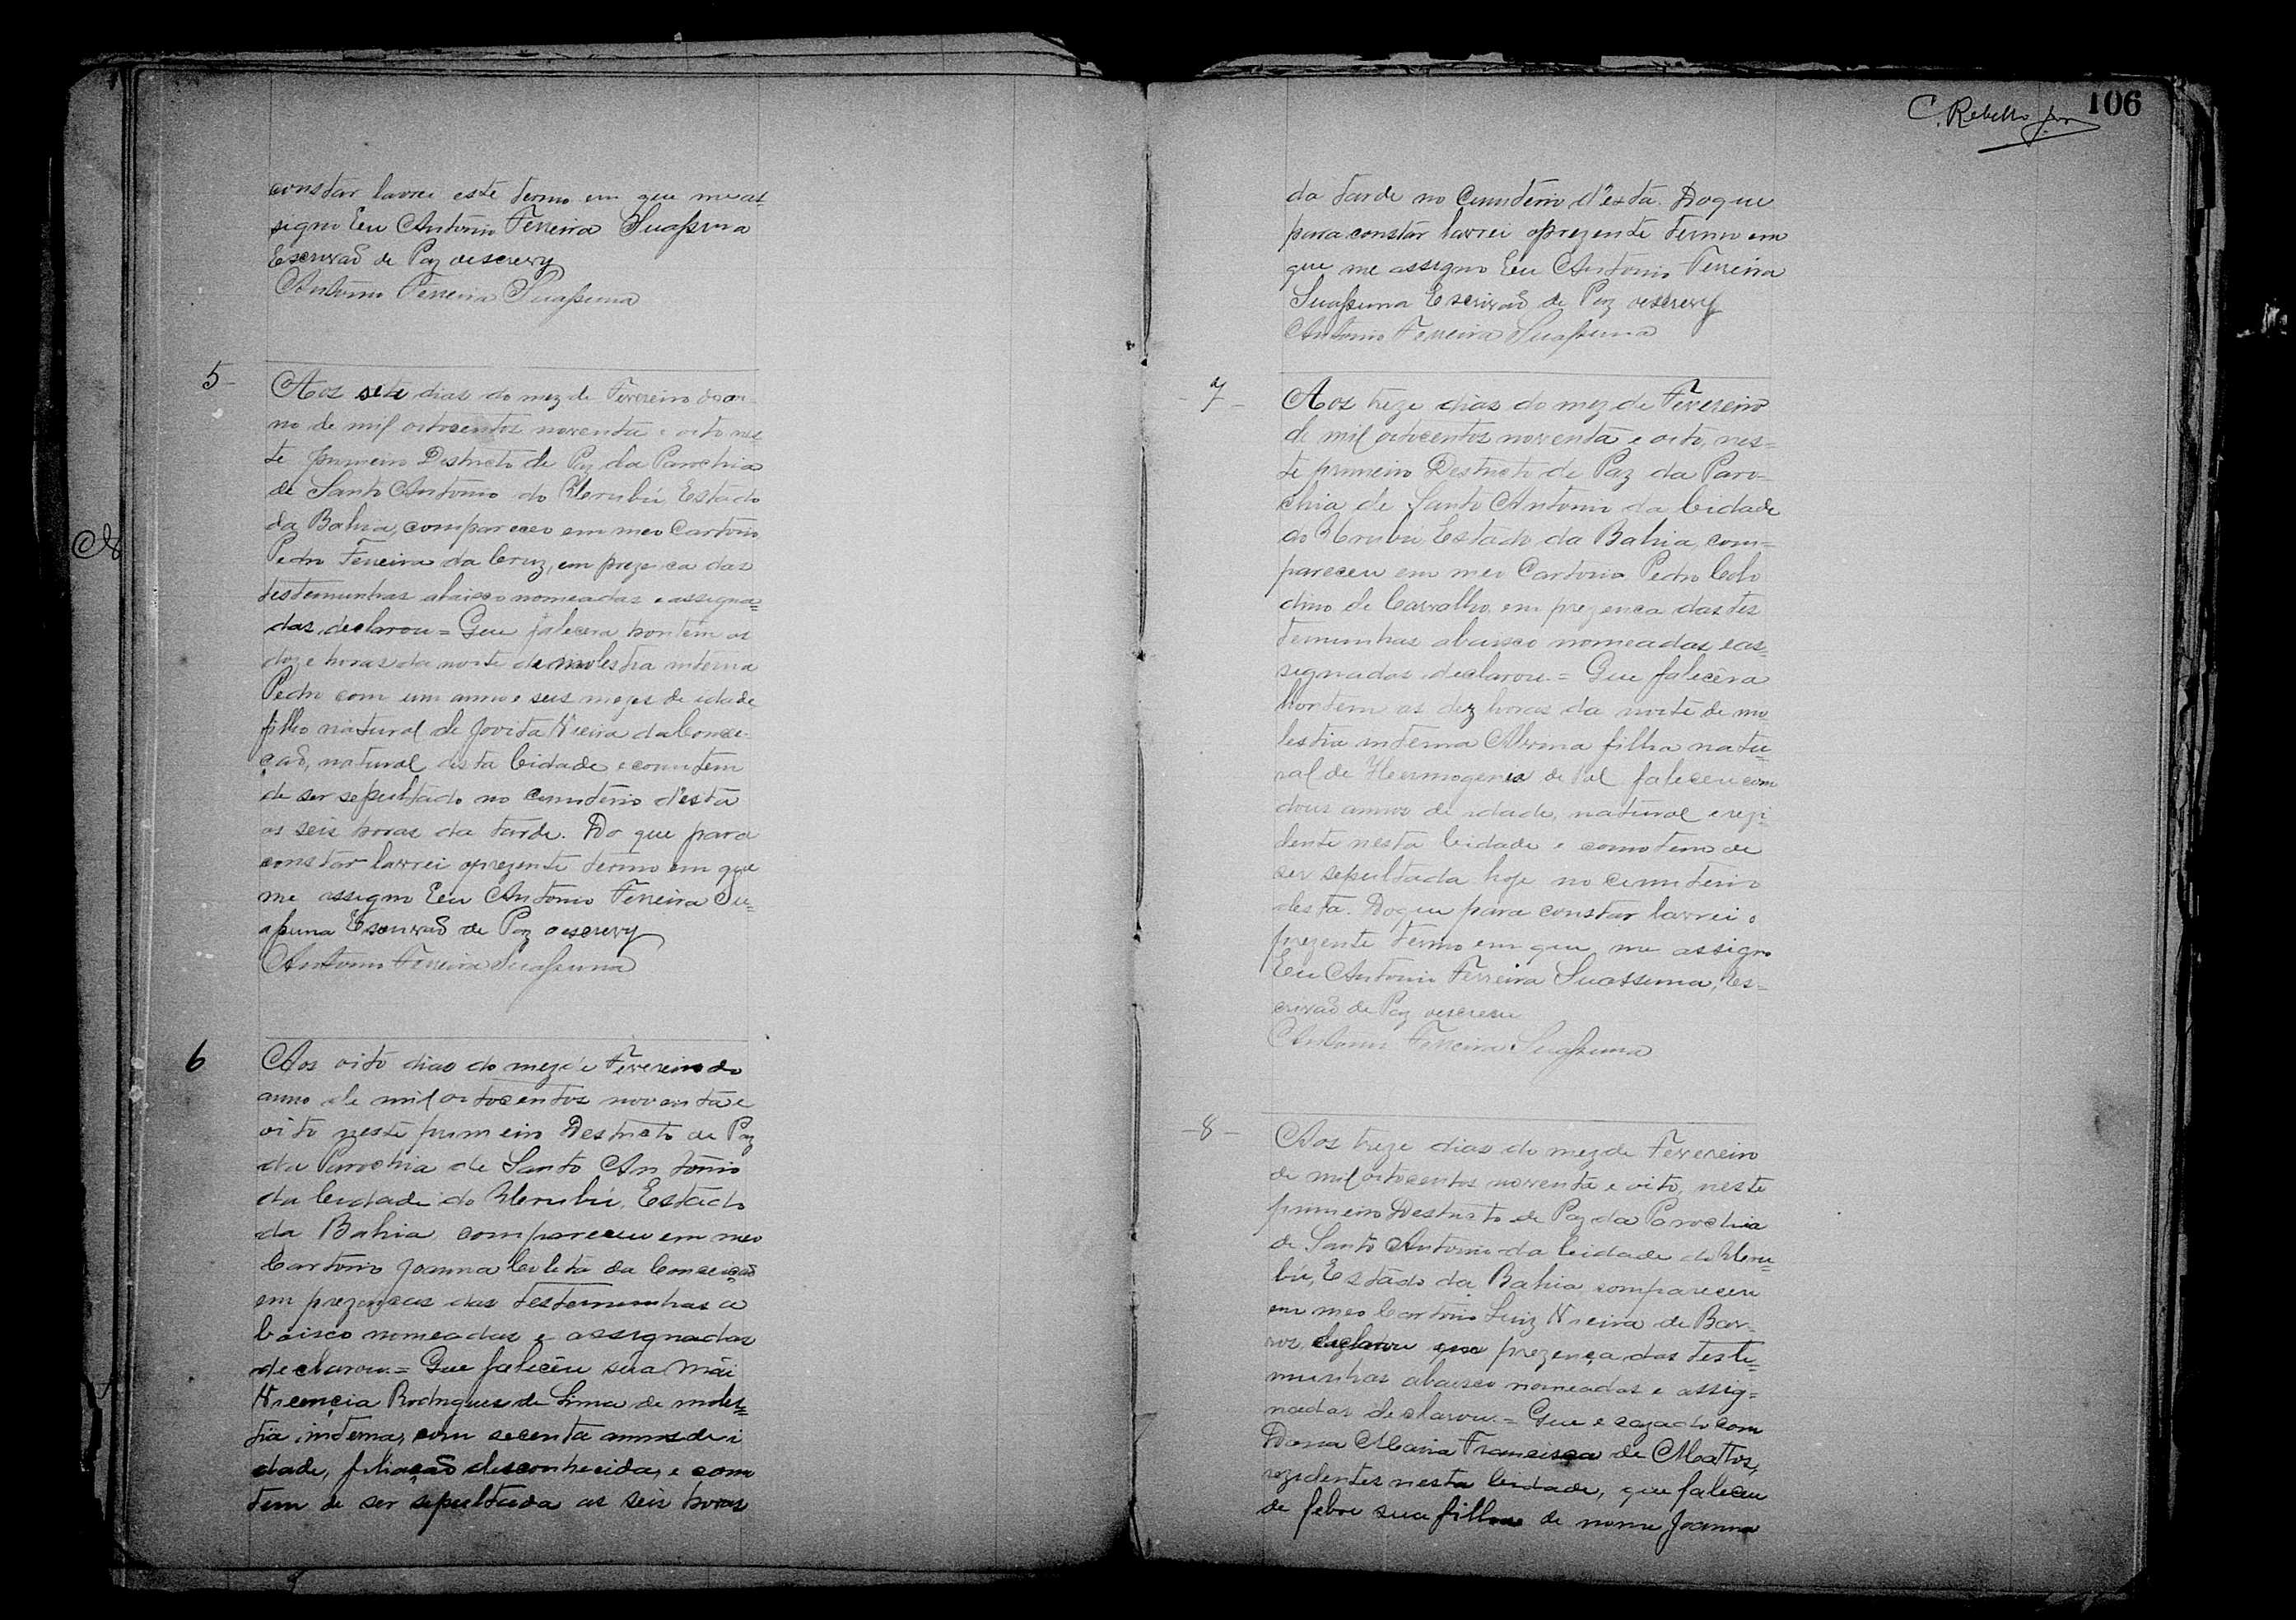 constar lavrei este termo em que me as=
signo Eu Antonio Ferreira Suassuna
Escrivaõ de Paz oescrevy
Antonio Ferreira Suassuna
5-
Aos sete dias do mez de Fevereiro do an-
no de mil oitocentos noventa e oito nes-
te primeiro Destricto de Paz da Parochia
de Santo Antonio do Urubú Estado
da Bahia, compareceo em meo Cartorio
Pedro Ferreira da Cruz, em preze ca das
testemunhas abaixo nomeadas e assigna=
das, declarou = Que falecera hontem as
doze horas da noite de molestia interna
Pedro com um anno e seis mezes de idade
filho natural de Jovita Vieira da Concei-
çaõ, natural desta Cidade e como tem
de ser sepultado no cemiterio d'esta
as seis horas da tarde. Do que para
constar lavrei oprezente termo em que
me assigno Eu Antonio Ferreira Su=
assuna Escrivaõ de Paz oescrevy
Antonio Ferreira Suassuna
6
Aos oito dias do mez de Fevereiro do
anno de mil oitocentos noventa e
oito neste primeiro Destricto de Paz
da Parochia de Santo Antonio
da Cidade do Urubú, Estado
da Bahia compareceu em meo
Cartorio Joanna Culeta da Conceiçaõ
em prezencas das testemunhas a
baixo nomeadas e assignadas
declarou = Que faleceu sua Mãi
Vicencia Rodrigues de Lima de moles=
tia interna, com secenta annos de i
dade, filiaçaõ desconhecida, e como
tem de ser sepultada as seis horas
C. Rebello
106
da tarde no Cemiterio d'esta. Do que
para constar lavrei oprezente termo em
que me assigno Eu Antonio Ferreira
Suassuna Escrivaõ de Paz oescrevy
Antonio Ferreira Suassuna
-7-
Aos treze dias do mez de Fevereiro
de mil oitocentos noventa e oito, nes=
te primeiro Destricto de Paz da Paro-
chia de Santo Antonio da Cidade
do Urubú Estado da Bahia, com=
pareceu em meo Cartorio Pedro
de Carvalho, em prezenca das tes
temunhas abaixo nomeadas eas=
signadas declarou = Que falecêra
hontem as dez horas da noite de mo
lestia interna Albina filha natu=
ral de Hermogenes de faleceu com
dous annos de idade, natural e rezi-
dente nesta Cidade e como tem de
ser sepultada hoje no cemiterio
desta. Do que para constar lavrei o
prezente termo em que me assigno
Eu Antonio Ferreira Suassuna, Es=
crivaõ de Paz oescrevi
Antonio Ferreira Suassuna
-8-
Aos treze dias do mez de Fevereiro
de mil oitocentos noventa e oito, neste
primeiro Destricto de Paz da Parochia
de Santo Antonio da Cidade do Uru=
bú, Estado da Bahia compareceu
em meo Cartorio Luiz Vieira de Bar-
ros, declarou em prezença das teste=
munhas abaixo nomeadas e assig=
nadas declarou = Que e cazado com
Dona Maria Francisca de Mattos,
rezidentes nesta Cidade, que faleceu
de febre sua filha de nome Joanna